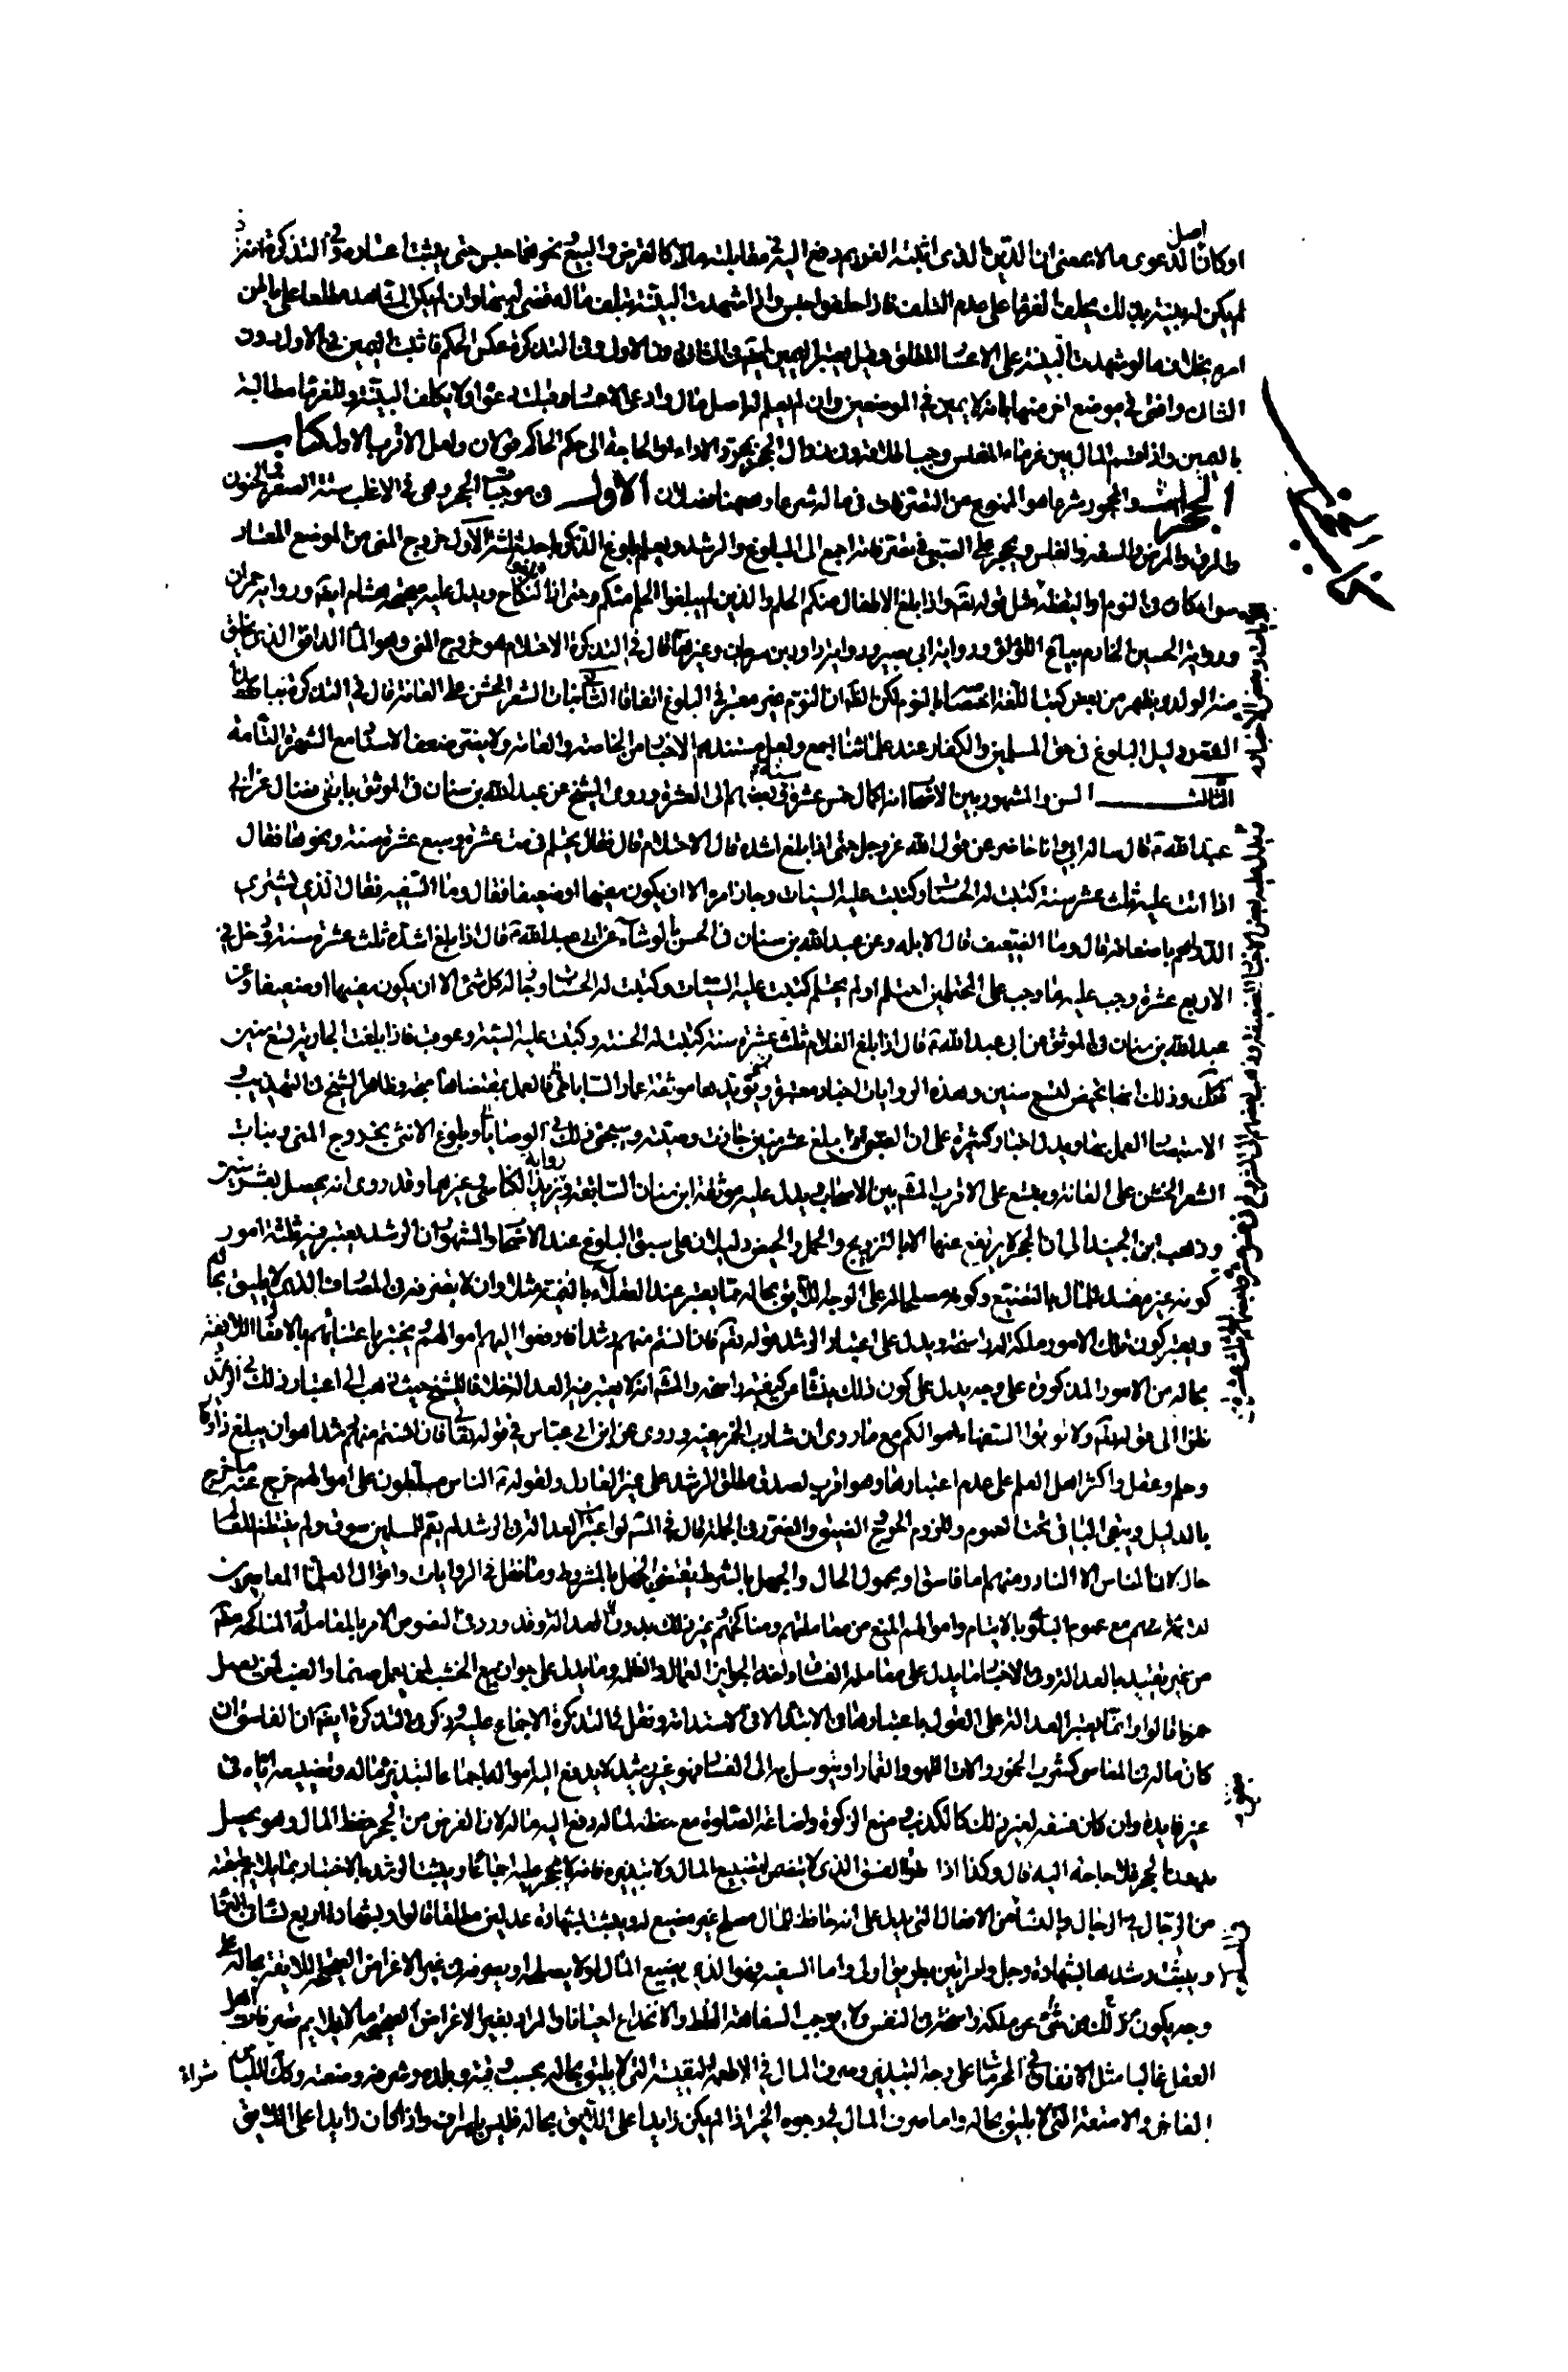 اصل
او كان الدعوى مالا بمعنى ان الدين الذى اثبته الغريم دفع اليه فى مقابلته مالا كالقرض والبيع نحوهما حبس حتى يثبت اعساره وفى التذكرة انه
لم يكن له بينة بذلك يحلف الغرماء على عدم التلف فاذا حلفوا حبس واذا شهدت البينة بتلف ماله قضى بها وان لم يكن الشاهد مطلعا على باطن
امره بخلاف ما لو شهدت البينة على الاعسار المطلق وقيل يعتبر اليمين ايضا فى الثانى دون الاول وفى التذكرة عكس الحكم فاثبت اليمين فى الاول دون
الثانى وافتى فى موضع اخر منها بانه لا يمين فى الموضعين وان لم يعلم له اصل مال وادعى الاعسار قبلت دعواه ولا يكلف البينة وللغرماء مطالبته
باليمين واذا قسم المال بين غرماء المفلس وجب اطلاقه وفى زوال الحجر بمجرد الاداء او الحاجة الى حكم الحاكم قولان ولعل الاقرب الاول كتاب
الحجر والمحجور شرعا هو الممنوع من التصرف فى ماله شرعا وههنا فصلان الاول فى موجبات الحجر وهى فى الاغلب ستة الصغر والجنون
والرق والمرض والسفه والفلس ويحجر على الصبى فى تصرفاته اجمع الى البلوغ والرشد ويعلم بلوغ الذكر باحد ثلثة الاول خروج المنى من الموضع المعتاد
سواء كان فى النوم او اليقظة مثل قوله تعالى واذا بلغ الاطفال منكم الحلم والذين لم يبلغوا الحلم منكم وحتى اذا بلغوا النكاح ويدل عليه صحيحة هشام ايضا ورواية حمران
ورواية الحسين الخادم بياع اللؤلؤ ورواية ابى بصير ورواية داود بن سرحان وغيرها قال فى التذكرة الاحتلام هو خروج المنى وهو الماء الدافق الذى يخلق
منه الولد ويظهر من بعض كتب اللغة اختصاصه بالنوم لكن الظ ان النوم غير معتبر فى البلوغ اتفاقا الثانى نبات الشعر الخشن على العانة قال فى التذكرة نبات هذا
الشعر دليل البلوغ فى حق المسلمين والكفار عند علمائنا اجمع ولعل مستندهم الاخبار من الخاصة والعامة ولا يضر ضعف الاسناد مع الشهرة التامة
الثالث السن والمشهور بين الاصحاب انه اكمال خمس عشرة سنة وفى بعضها الى العشرة وروى الشيخ عن عبد الله بن سنان فى الموثق بابن فضال عن ابى
عبد الله ع قال ساله ابى وانا حاضر عن قول الله عز وجل حتى اذا بلغ اشده قال الاحتلام قال فقال يحتلم فى ست عشرة وسبع عشرة سنة ونحوها فقال
اذا اتت عليه ثلث عشرة سنة كتبت له الحسنات وكتبت عليه السيئات وجاز امره الا ان يكون سفيها او ضعيفا فقال وما السفيه فقال الذى يشترى
الدرهم باضعافه قال وما الضعيف قال الابله وعن عبد الله بن سنان فى الحسن بالوشاء عن ابى عبد الله ع قال اذا بلغ اشده ثلث عشرة سنة ودخل فى
الاربع عشرة وجب عليه ما وجب على المحتلمين احتلم او لم يحتلم كتبت عليه السيئات وكتبت له الحسنات وجاز له كل شئ الا ان يكون سفيها او ضعيفا وعن
عبد الله بن سنان فى الموثق عن ابى عبد الله ع قال اذا بلغ الغلام ثلث عشرة سنة كتبت له الحسنة وكتبت عليه السيئة وعوقب فاذا بلغت الجارية تسع سنين
فكك وذلك انها تحيض لتسع سنين وهذه الروايات اخبار معتبرة ويؤيدها موثقة عمار الساباطى فالعمل بمقتضاها متجه وظاهر الشيخ فى التهذيب و
الاستبصار العمل بها ويدل اخبار كثيرة على ان الصبى اذا بلغ عشر سنين جازت وصيته وسيجئ ذلك فى الوصايا وبلوغ الانثى بخروج المنى ونبات
الشعر الخشن على العانة وبتسع على الاقرب المشهور بين الاصحاب يدل عليه موثقة ابن سنان السابقة ورواية يزيد الكناسى وغيرهما وقد روى انه يحصل بعشر سنين
وذهب ابن الجنيد الى ان الحجر لا يرتفع عنها الا بالتزويج والحمل والحيض دليلان على سبق البلوغ عند الاصحاب والمشهور ان الرشد يعتبر فيه ثلثة امور
كونه غير مفسد للمال بالتضييع وكونه مصلحا له على الوجه اللايق بحاله مما يعتبر عند العقلاء بالقيمة مثلا وان لا يصرفه فى المصارف الذى لا يليق بحاله
ويعتبر كون تلك الامور ملكة له راسخة ويدل على اعتبار الرشد قوله تعالى فان انستم منهم رشدا فادفعوا اليهم اموالهم يختبر باعتنائهم بالافعال اللايقة
بحاله من الامور المذكورة على وجه يدل على كون ذلك ينشا عن كيفية راسخة والمشهور انه لا يعتبر فيه العدالة خلافا للشيخ حيث ذهب الى اعتبار ذلك فى الرشد
نظرا الى قوله تعالى ولا تؤتوا السفهاء اموالكم مع ما روى ان شارب الخمر سفيه وروى عن ابن عباس فى قوله تعالى فان انستم منهم رشدا هو ان يبلغ ذا وقار
وحلم وعقل واكثر اهل العلم على عدم اعتبارها وهو اقرب لصدق مطلق الرشد على غير العادل ولقوله ع الناس مسلطون على اموالهم خرج عنه ما خرج
بالدليل وبقى الباقى تحت العموم وللزوم الحرج والضيق والضرر فى الجملة قال فى المسالك لو اعتبرت العدالة فى الرشد لم يقم للمسلمين سوق ولم ينتظم للعالم
حال لان الناس الا النادر منهم اما فاسق او مجهول الحال والجهل بالشرط يقتضى الجهل بالمشروط وما نقل فى الروايات واقوال العلماء المعاصرين
لائمتهم مع عموم البلوى بالايتام واموالهم المنع من معاملتهم ومناكحتهم وغير ذلك بدون العدالة وقد ورد فى النصوص الامر بالمعاملة والمناكحة مطلقا
من غير تقييد بالعدالة وفى الاخبار ما يدل على معاملة الفساق واخذ الجوايز العمال والظلمة وما يدل على جواز بيع الخشب لمن يعمل صنما والعنب لمن يعمل
خمرا قالوا وانما يعتبر العدالة على القول باعتبارها فى الابتداء لا فى الاستدامة ونقل فى التذكرة الاجماع عليه وذكر فى التذكرة ايضا ان الفاسق ان
كان ماله فى المعاصى كشرب الخمور والات اللهو والقمار او يتوسل به الى الفساد فهو غير رشيد لا يدفع اليه امواله اجماعا لتبذيره ماله وتضييعه اياه فى
غير فايدة وان كان فسقه لغير ذلك كالكذب ومنع الزكوة واضاعة الصلوة مع حفظه لماله دفع اليه ماله لان الغرض من الحجر حفظ المال وهو يحصل
بدون الحجر فلا حاجة اليه قال وكذا اذا طرا الفسق الذى لا يتضمن تضييع المال ولا تبذيره فانه لا يحجر عليه اجماعا ويثبت الرشد بالاختبار بما يلايم طبقته
من الرجال فى الرجال والنساء من الافعال التى يدل على انه حافظ للمال مصلح غير مضيع له ويثبت بشهادة عدلين مطلقا قالوا وبشهادة اربع نساء فى النساء
ويثبت رشدها بشهادة رجل وامراتين بطريق اولى واما السفيه فهو الذى يضيع المال او لا يصلحه او يصرفه فى غير الاغراض الصحيحة اللايقة بحاله على
وجه يكون ذلك من شئ عن ملكة راسخة فى النفس ولا يوجب السفاهة الغلط والانخداع احيانا والمراد بغير الاغراض الصحيحة ما لا يلايم تصرفات اهل
العقل غالبا مثل الانفاق فى المحرمات على وجه التبذير وصرف المال فى الاطعمة النفيسة التى لا يليق بحاله بحسب وقته وبلده وشرفه وضعته وكك اللباس شراء
الفاخر والامتعة التى لا يليق بحاله واما صرف المال فى وجوه الخير اذا لم يكن زايدا على اللايق بحاله فليس باسراف واذا كان زايدا على اللايق